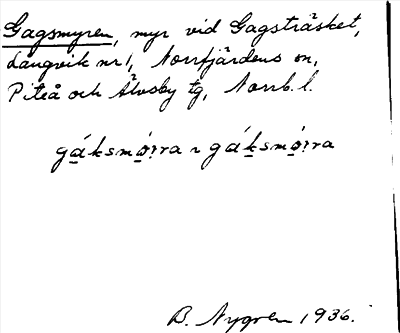 Gagsmyren, myr vid Gagsträsket,
Långvik nr 1, Norrfjärdens sn,
Piteå och Älvsby tg, Norrb. l.
gáksmó̱rra ~ gáḵsmó̱rra
B. Nygren 1936.